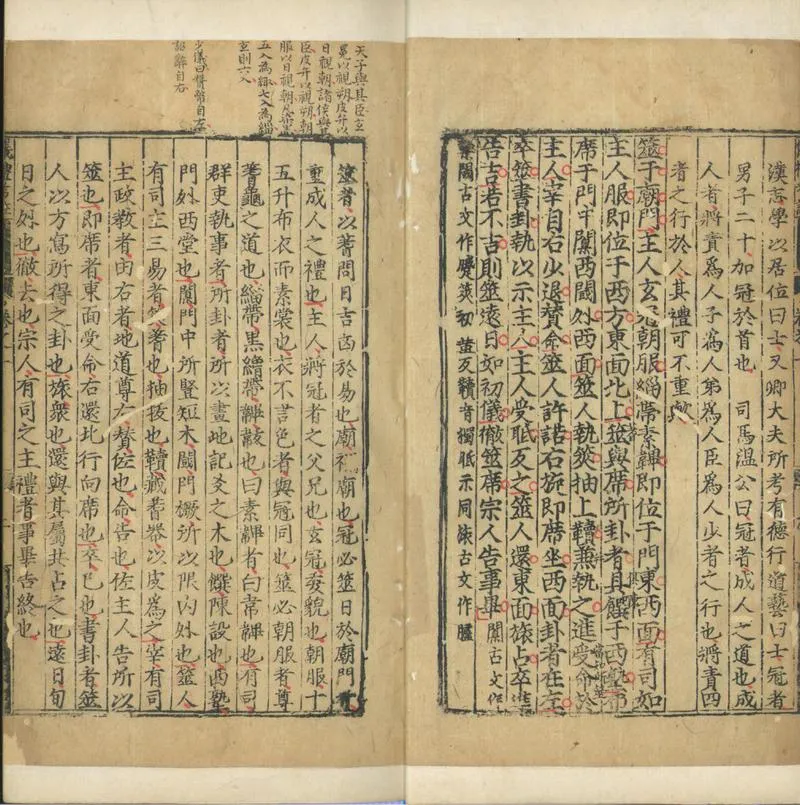 漢志學以居位曰士又卿大夫所考有德行道藝曰士冠者
男子二十加冠於首也　司馬溫公曰冠者成人之道也成
人者將責爲人子爲人弟爲人臣爲人少者之行也將責四
者之行於人其禮可不重歟
筮于廟門主人玄冠朝服緇帶素韠即位于門東西面有司如
主人服即位于西方東面北上筮與席所卦者具饌于西塾布
席于門中闑西閾外西面筮人執筴抽上韇兼執之進受命於
主人宰自右少退贊命筮人許諾右旋即席坐西面卦者在左
卒筮書卦執以示主人主人受眡反之筮人還東面旅占卒進
告吉若不吉則筮遠日如初儀徹筮席宗人告事畢
闑古文作
槷閾古文作蹙筴初革反韇音獨眡示同旅古文作臚
筮者以蓍問日吉凶於易也廟禰廟也冠必筮日於廟門者
重成人之禮也主人將冠者之父兄也玄冠委貌也朝服十
五升布衣而素裳也衣不言色者與冠同也筮必朝服者尊
蓍龜之道也緇帶黑繒帶韠韍也曰素韠者白韋韠也有司
群吏執事者所卦者所以畫地記爻之木也饌陳設也西塾
門外西堂也闑門中所豎短木閾門橛所以限內外也筮人
有司主三易者筴蓍也抽拔也韇藏蓍器以皮爲之宰有司
主政教者由右者地道尊右贊佐也命告也佐主人告所以
筮也即席者東面受命右還北行向席也卒已也書卦者筮
人以方寫所得之卦也旅衆也還與其屬共占之也遠日旬
日之外也徹去也宗人有司之主禮者事畢告終也
天子與其臣玄
冕以視朔皮弁以
日視朝諸侯與其
臣皮弁以視朔朝
服以日視朝凡染黑
五入爲緅七入爲緇
玄則六入
少儀曰贊幣自左
詔辭自右